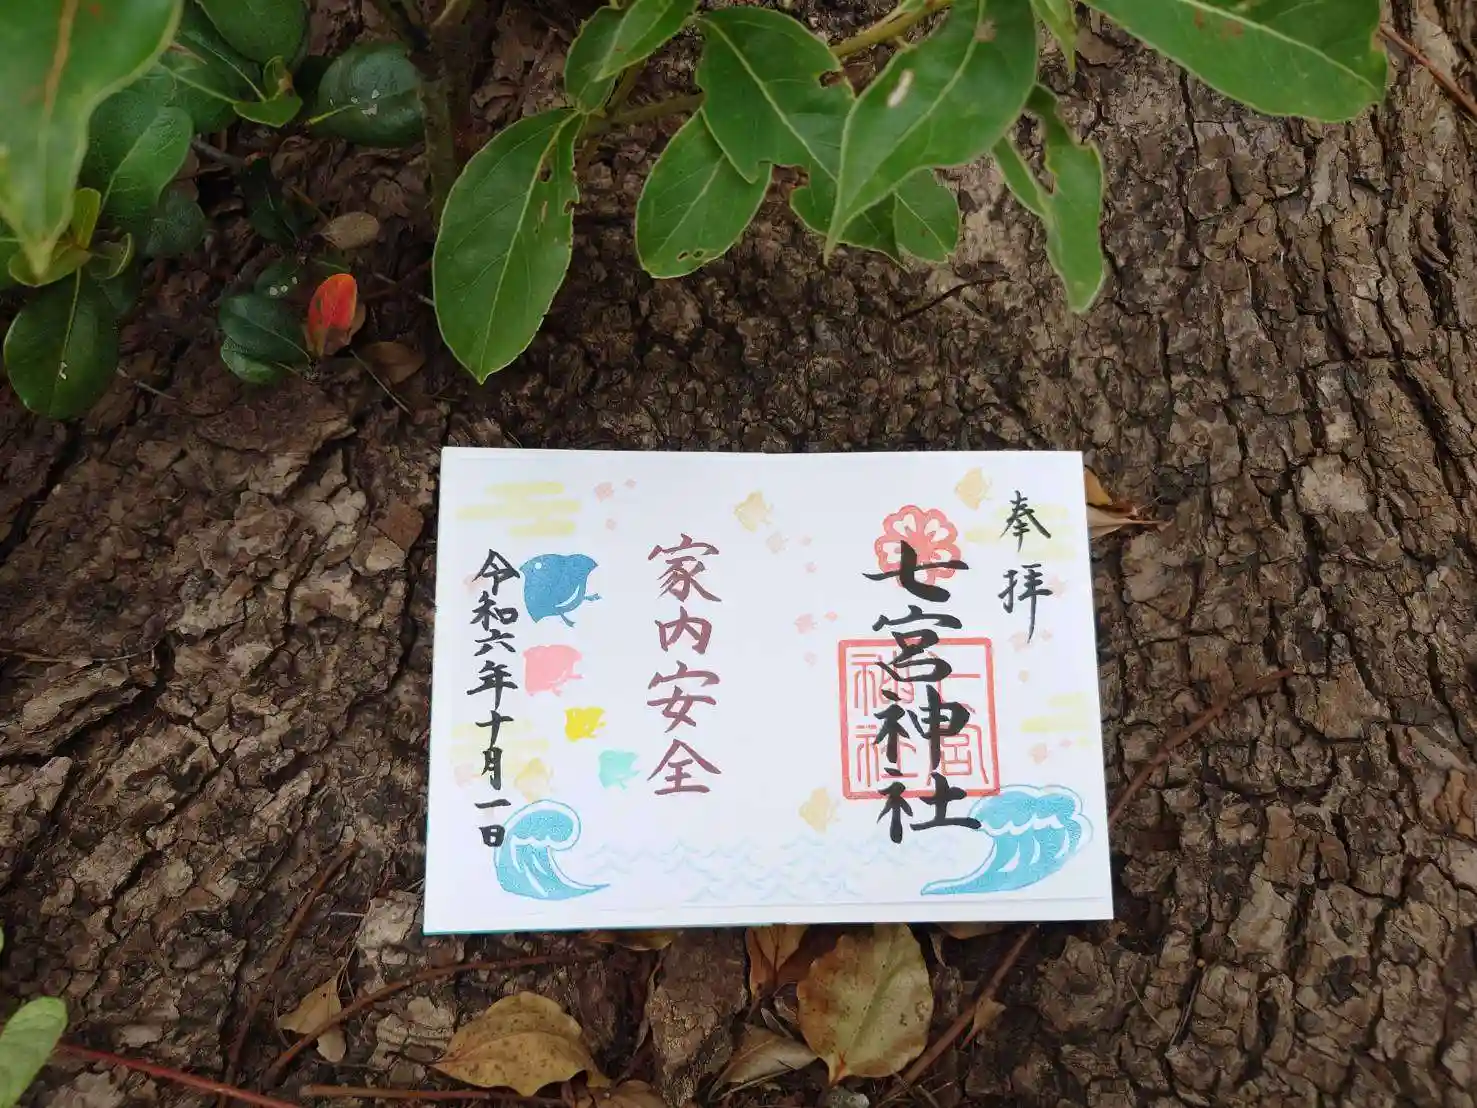 奉拝
七宮神社
七宮
神社
家内安全
令和六年十月一日